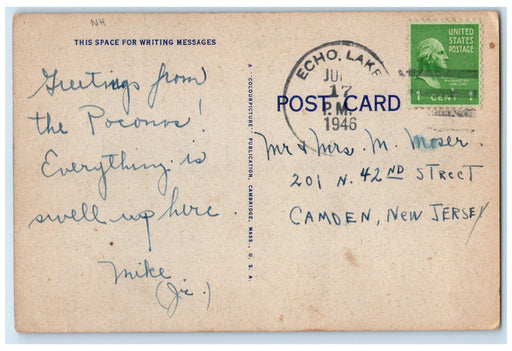 NH
THIS SPACE FOR WRITING MESSAGES
Greetings from
the Poconos!
Everything is
swell up here.
Mike
(Jr.)
A "COLOURPICTURE" PUBLICATION, CAMBRIDGE, MASS., U.S.A.
ECHO, LAKE
17
P.M.
1946
UNITED
STATES
POSTAGE
WASHINGTON
1 CENT 1
POST CARD
Mr & Mrs. M. Moser
201 N. 42ND STREET
CAMDEN, NEW JERSEY